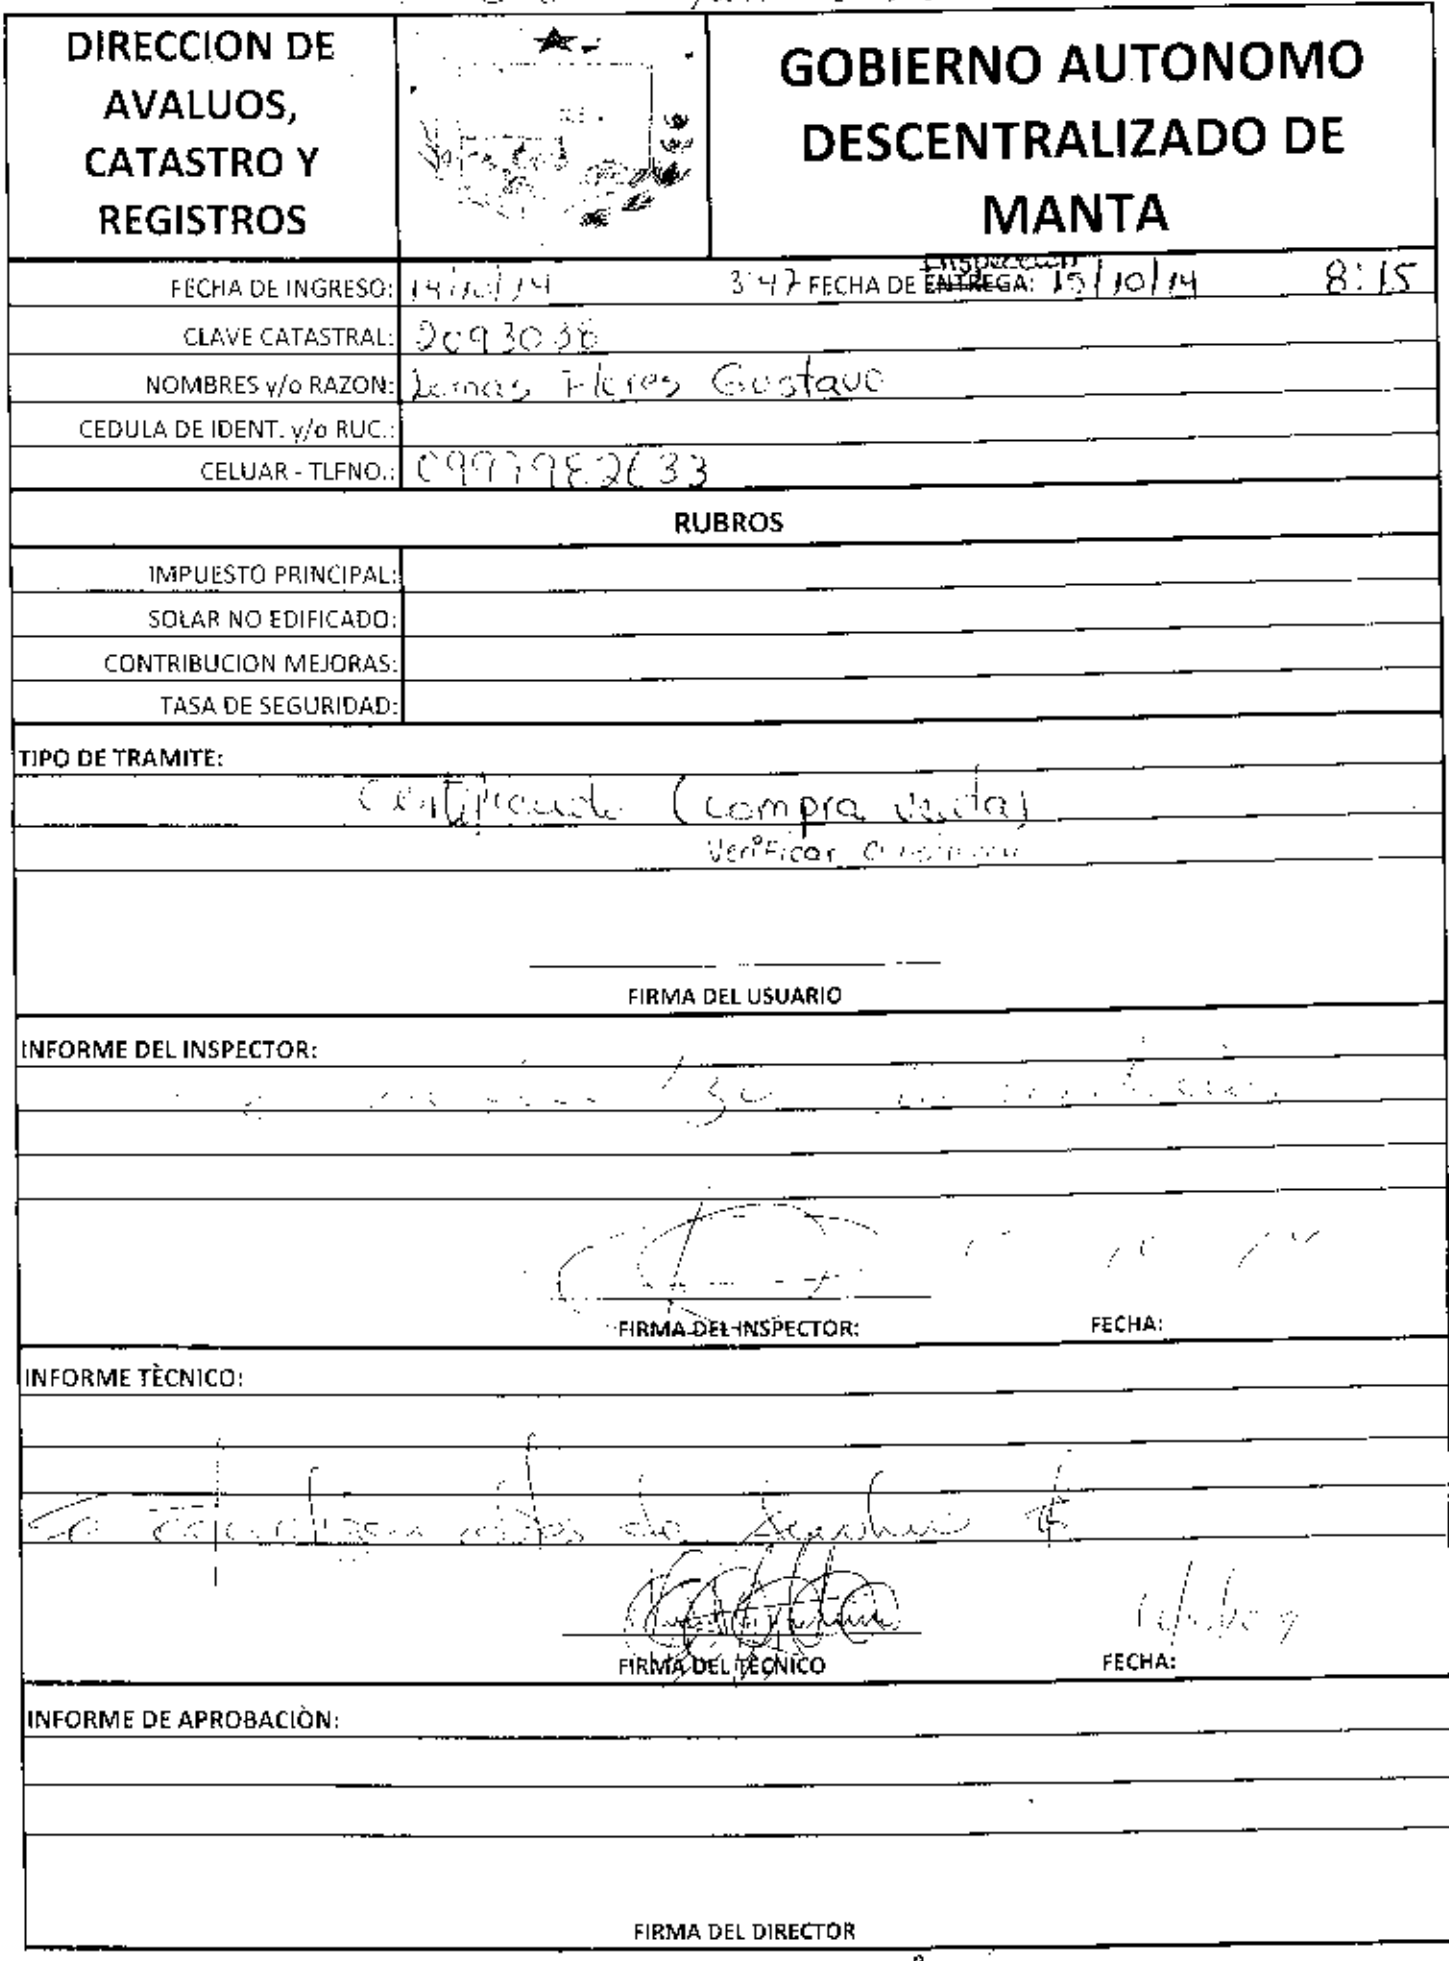 DIRECCION DE
AVALUOS,
CATASTRO Y
REGISTROS
GOBIERNO AUTONOMO
DESCENTRALIZADO DE
MANTA
FECHA DE INGRESO: 14/10/14 3:47 FECHA DE ENTREGA: Inspeccion 15/10/14 8:15
CLAVE CATASTRAL: 2093038
NOMBRES y/o RAZON: Lemas Flores Gustavo
CEDULA DE IDENT. y/o RUC.:
CELUAR - TLFNO.: 0997982633
RUBROS
IMPUESTO PRINCIPAL:
SOLAR NO EDIFICADO:
CONTRIBUCION MEJORAS:
TASA DE SEGURIDAD:
TIPO DE TRAMITE:
Certificado (compra venta)
Verificar
FIRMA DEL USUARIO
INFORME DEL INSPECTOR:
FIRMA DEL INSPECTOR: FECHA:
INFORME TÈCNICO:
Se de
FIRMA DEL TECNICO FECHA:
INFORME DE APROBACIÒN:
FIRMA DEL DIRECTOR